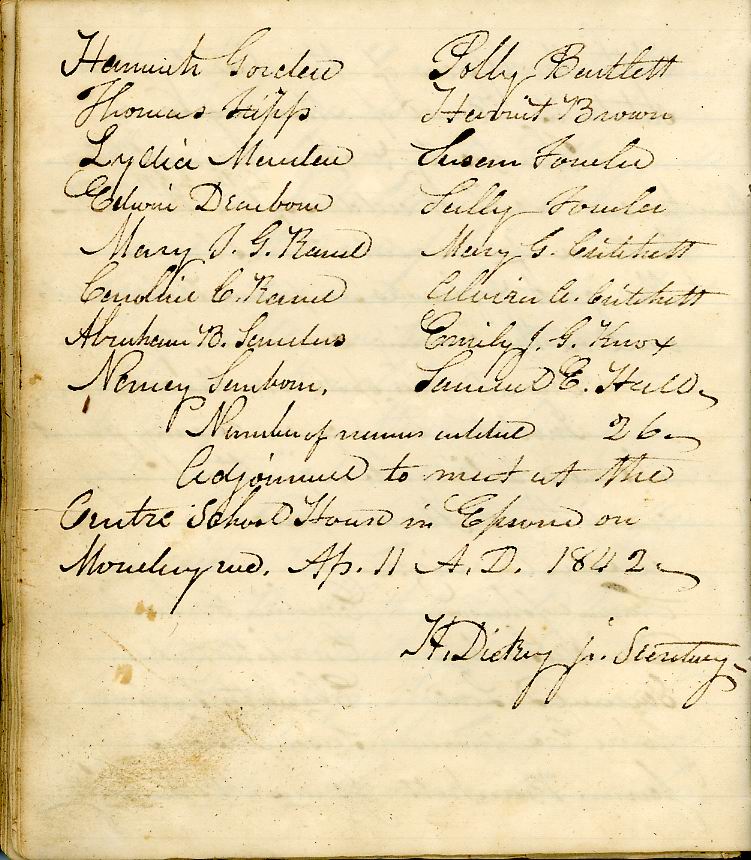 Hannah Gorden Polly Bartlett
Thomas Tripp Harriet Brown
Lydia Marden Susan Fowler
Edwin Dearborn Sally Fowler
Mary J. G. Rand Mary G. Critchett
Caroline C. Rand Alvira A. Critchett
Abraham B. Sanders Emily J. G. Knox
Nancy Sanborn. Samuel E. Hall
Number of names added 26
Adjourned to meet at the
Centre School House in Epsom on
Monday Ap. 11 A.D. 1842
H. Dickey jr. Secretary